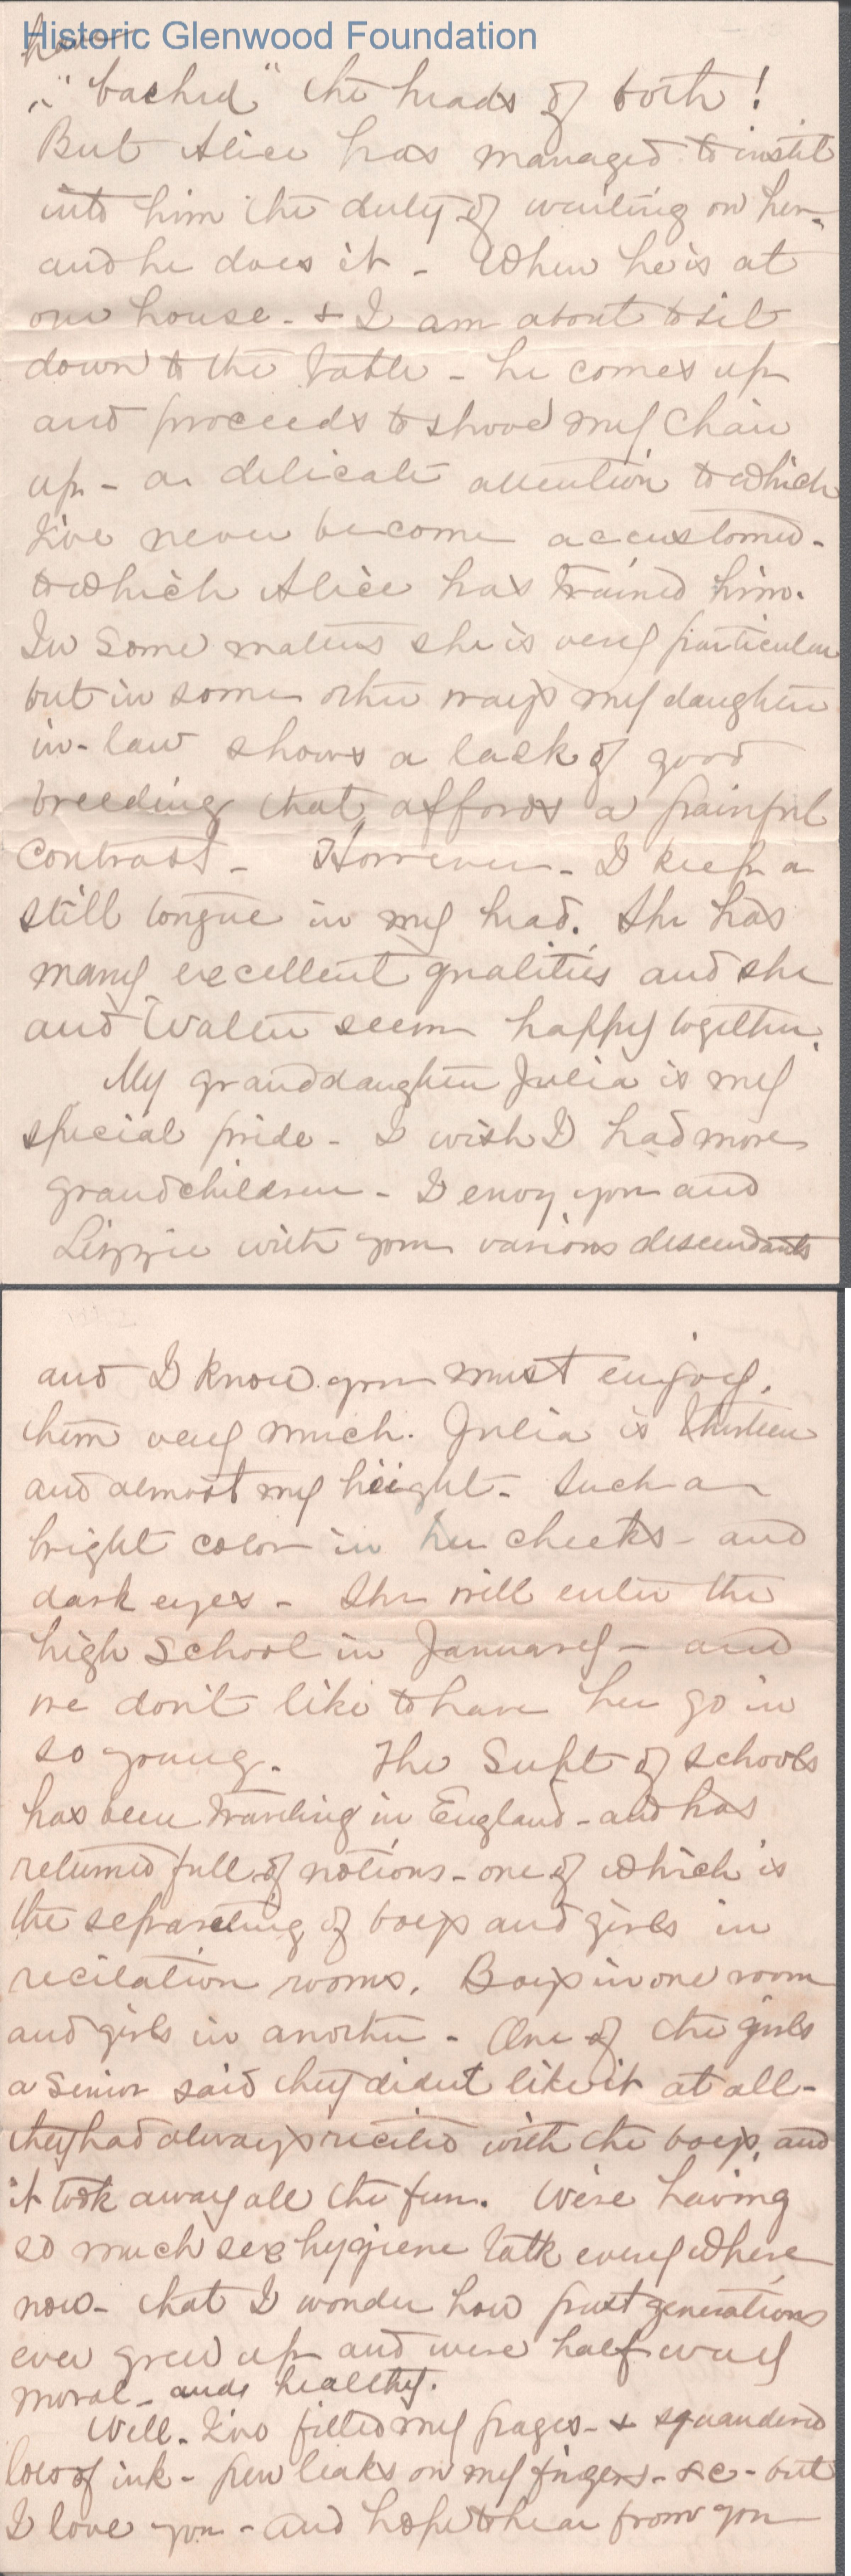 Historic Glenwood Foundation
have
"bached" the heads of both!
But Alice has managed to instil
into him the duty of waiting on her -
and he does it - When he is at
our house - & I am about to sit
down to the table - he comes up
and proceeds to shove my chair
up - a delicate attention to which
I've never become accustomed -
to which Alice has trained him.
In some matters she is very particular
but in some other ways my daughter
in-law shows a lack of good
breeding that affords a painful
contrast - However - I keep a
still tongue in my head. She has
many excellent qualities and she
and Walter seem happy together.
My granddaughter Julia is my
special pride - I wish I had more
grandchildren - I envy you and
Lizzie with your various descendants
and I know you must enjoy
them very much. Julia is thirteen
and almost my height - Such a
bright color in her cheeks - and
dark eyes - She will enter the
high School in January - and
we don't like to have her go in
so young. The Supt of schools
has been traveling in England - and has
returned full of notions - one of which is
the separating of boys and girls in
recitation rooms. Boys in one room
and girls in another - One of the girls
a senior said they didn't like it at all -
they had always recited with the boys, and
it took away all the fun. We're having
so much sex hygiene talk everywhere
now - that I wonder how past generations
ever grew up and were half way
moral - and healthy.
Well - I've filled my pages - & squandered
lots of ink - pen leaks on my fingers - &c - but
I love you - and hope to hear from you